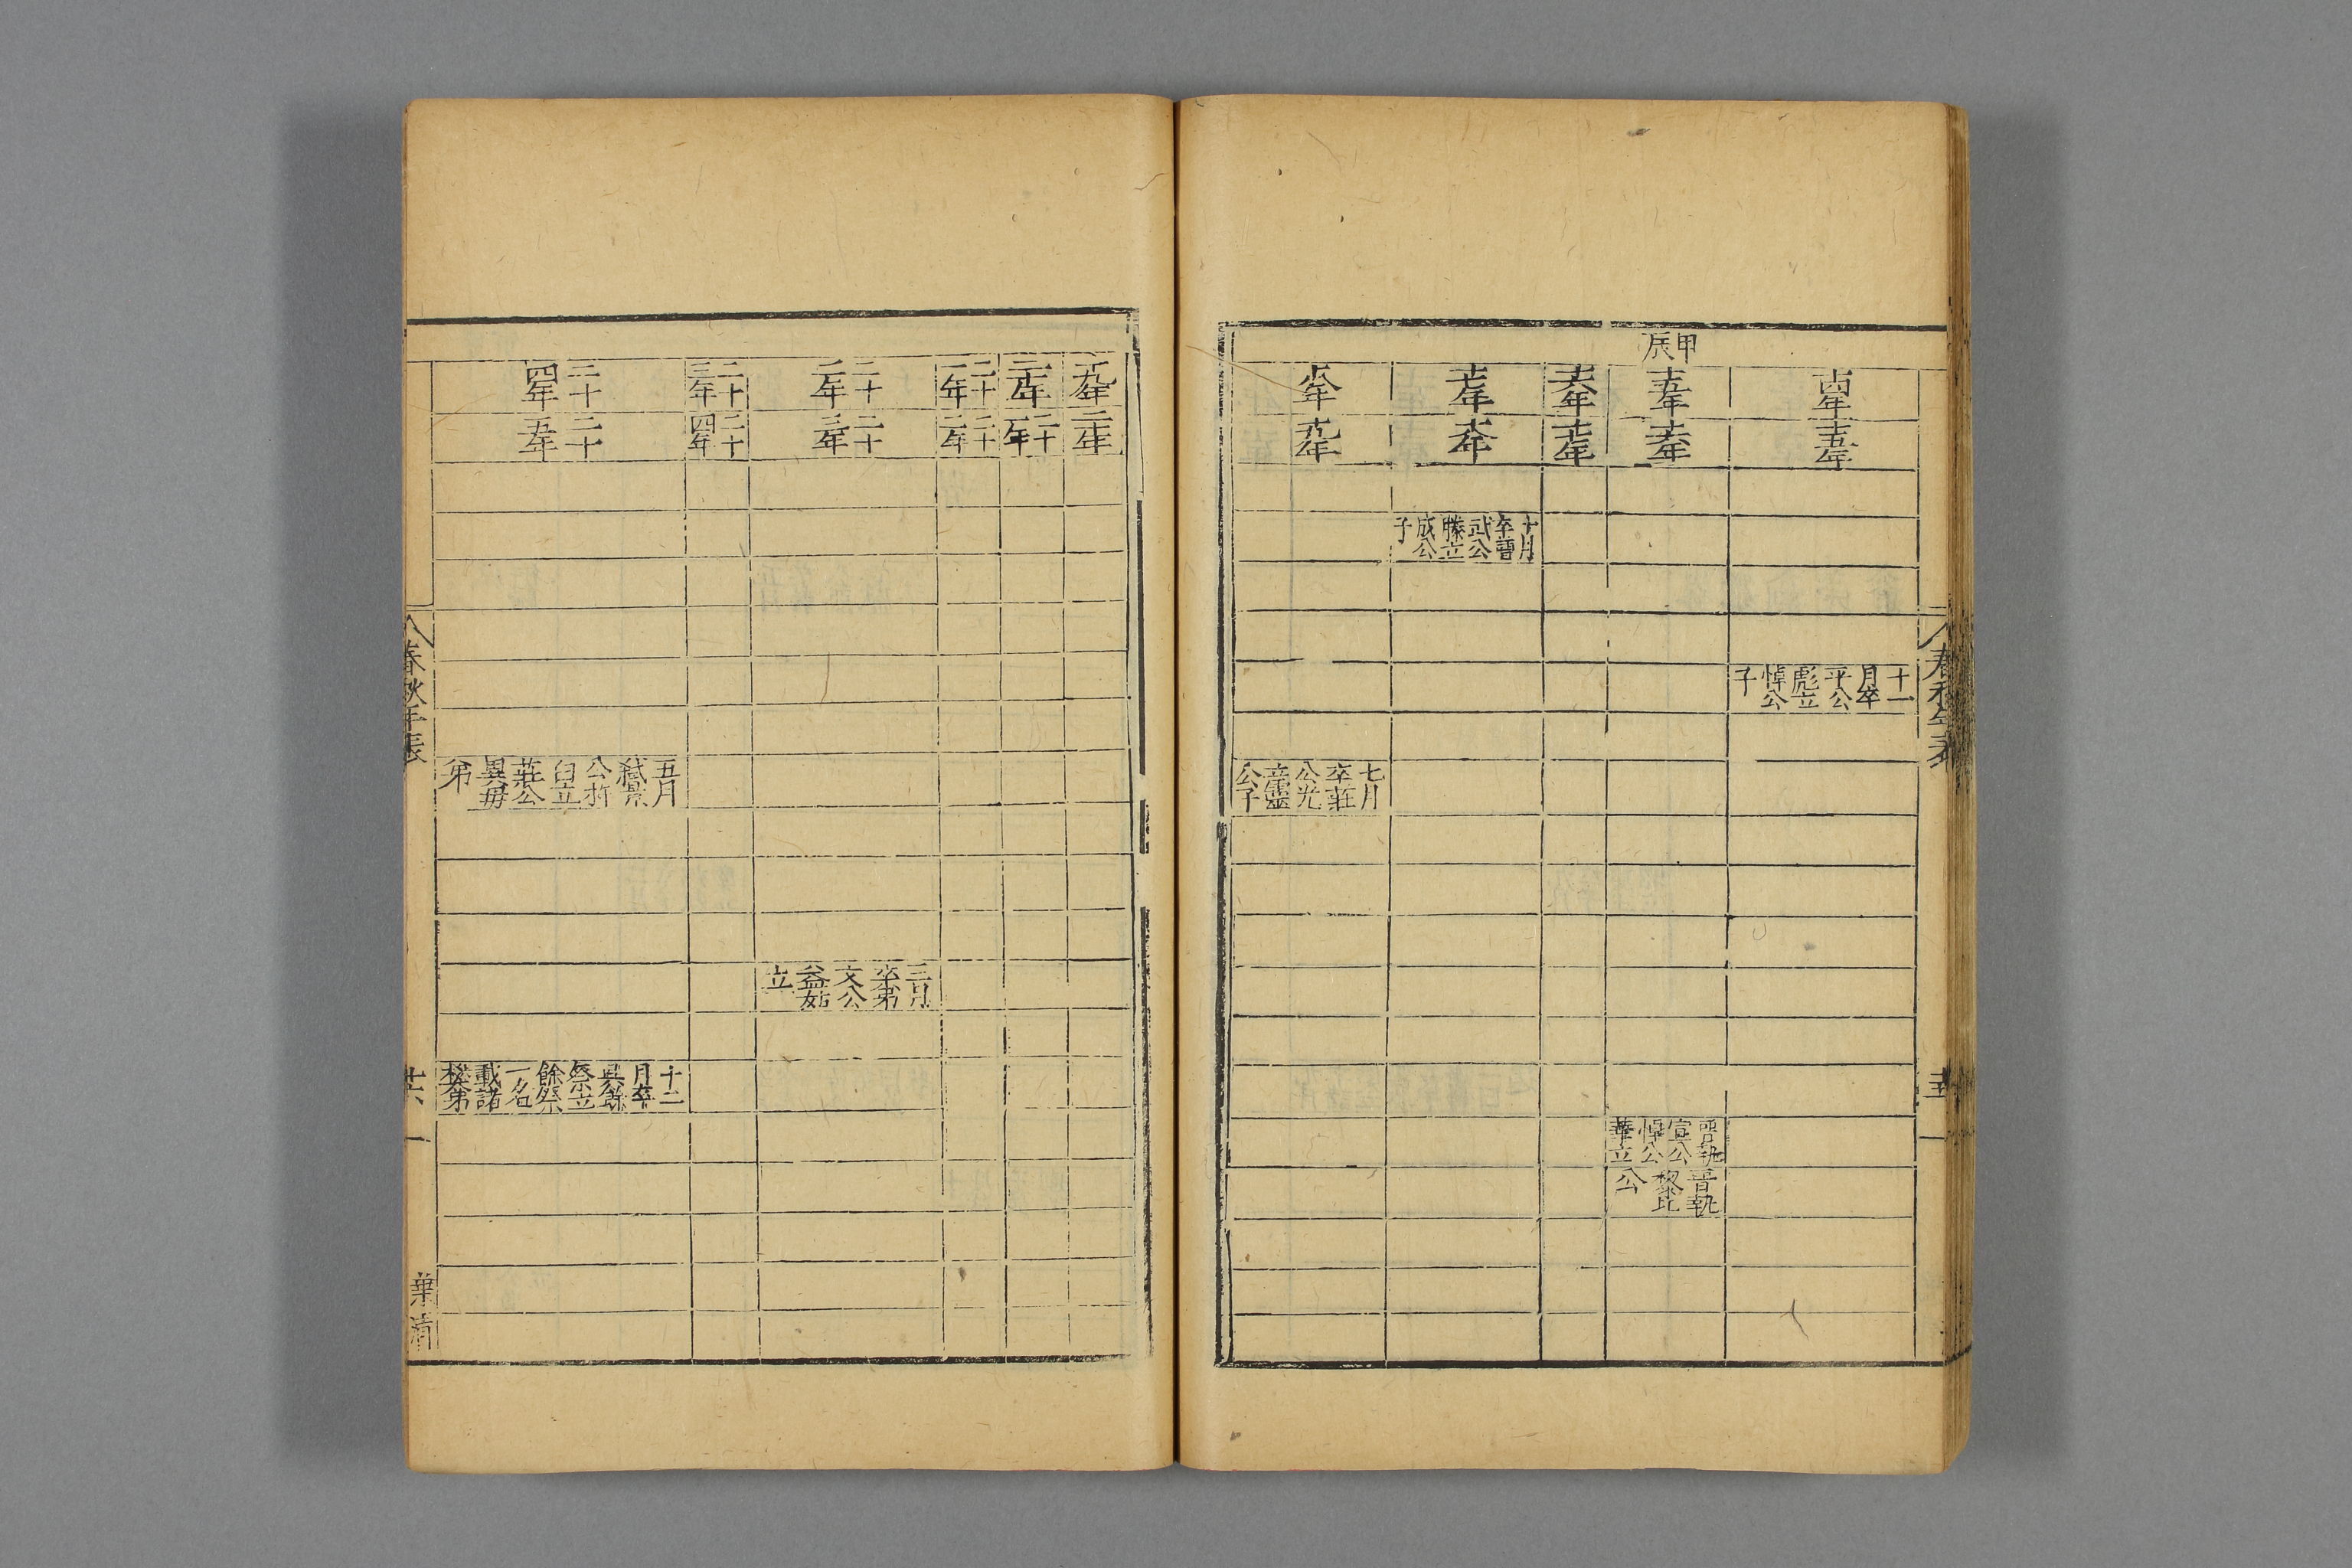 春秋年表
甲辰
十四年
十五年
十一月卒平公彪立悼公子
十五年
十六年
晉執宣公悼公華立
晉執黎比公
十六年
十七年
十七年
十八年
十月卒曹武公滕立成公子
十八年
十九年
七月卒莊公光立靈公子
十九年
二十年
二十年
二十一年
二十一年
二十二年
二十二年
二十三年
三月卒弟文公益姑立
二十三年
二十四年
二十四年
二十五年
五月弑景公杵臼立莊公異母弟
十二月卒吳餘祭立餘祭一名戴諸樊弟
春秋年表
廿六